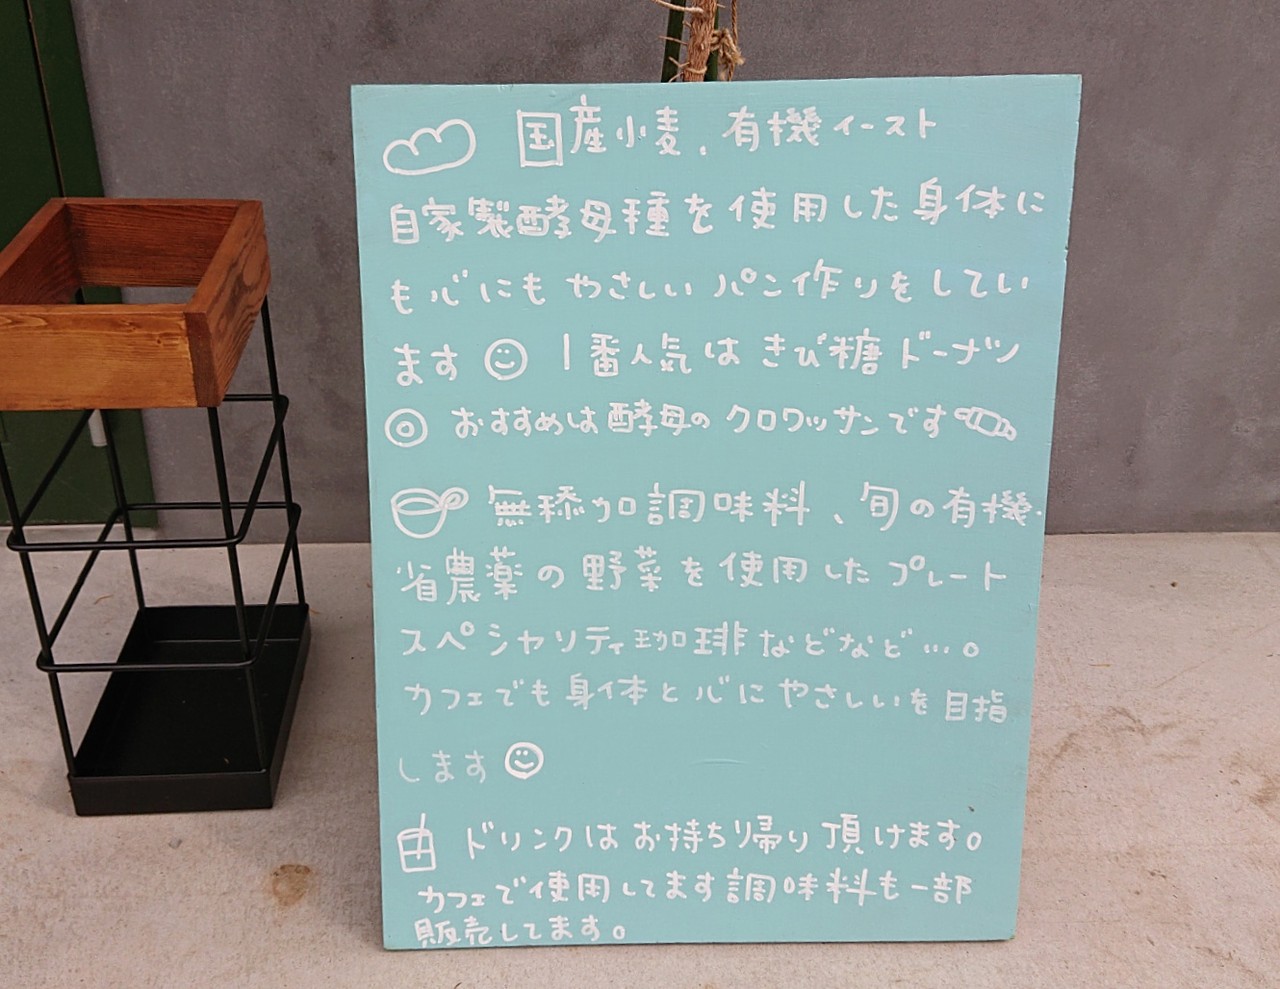 国産小麦、有機イースト
自家製酵母種を使用した身体に
も心にもやさしいパン作りをしてい
ます 1番人気はきび糖ドーナツ
おすすめは酵母のクロワッサンです
無添加調味料、旬の有機・
省農薬の野菜を使用したプレート
スペシャリティ珈琲などなど…。
カフェでも身体と心にやさしいを目指
します
ドリンクはお持ち帰り頂けます。
カフェで使用してます調味料も一部
販売してます。